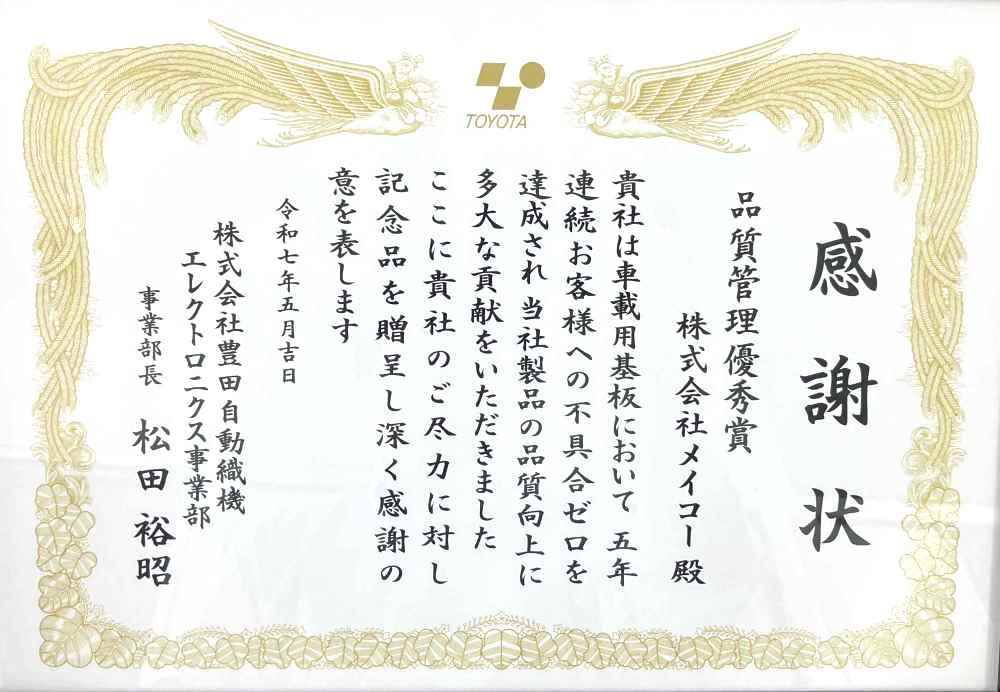 TOYOTA
感謝状
品質管理優秀賞
株式会社メイコー殿
貴社は車載用基板において 五年
連続お客様への不具合ゼロを
達成され 当社製品の品質向上に
多大な貢献をいただきました
ここに貴社のご尽力に対し
記念品を贈呈し深く感謝の
意を表します
令和七年五月吉日
株式会社豊田自動織機
エレクトロニクス事業部
事業部長 松田裕昭